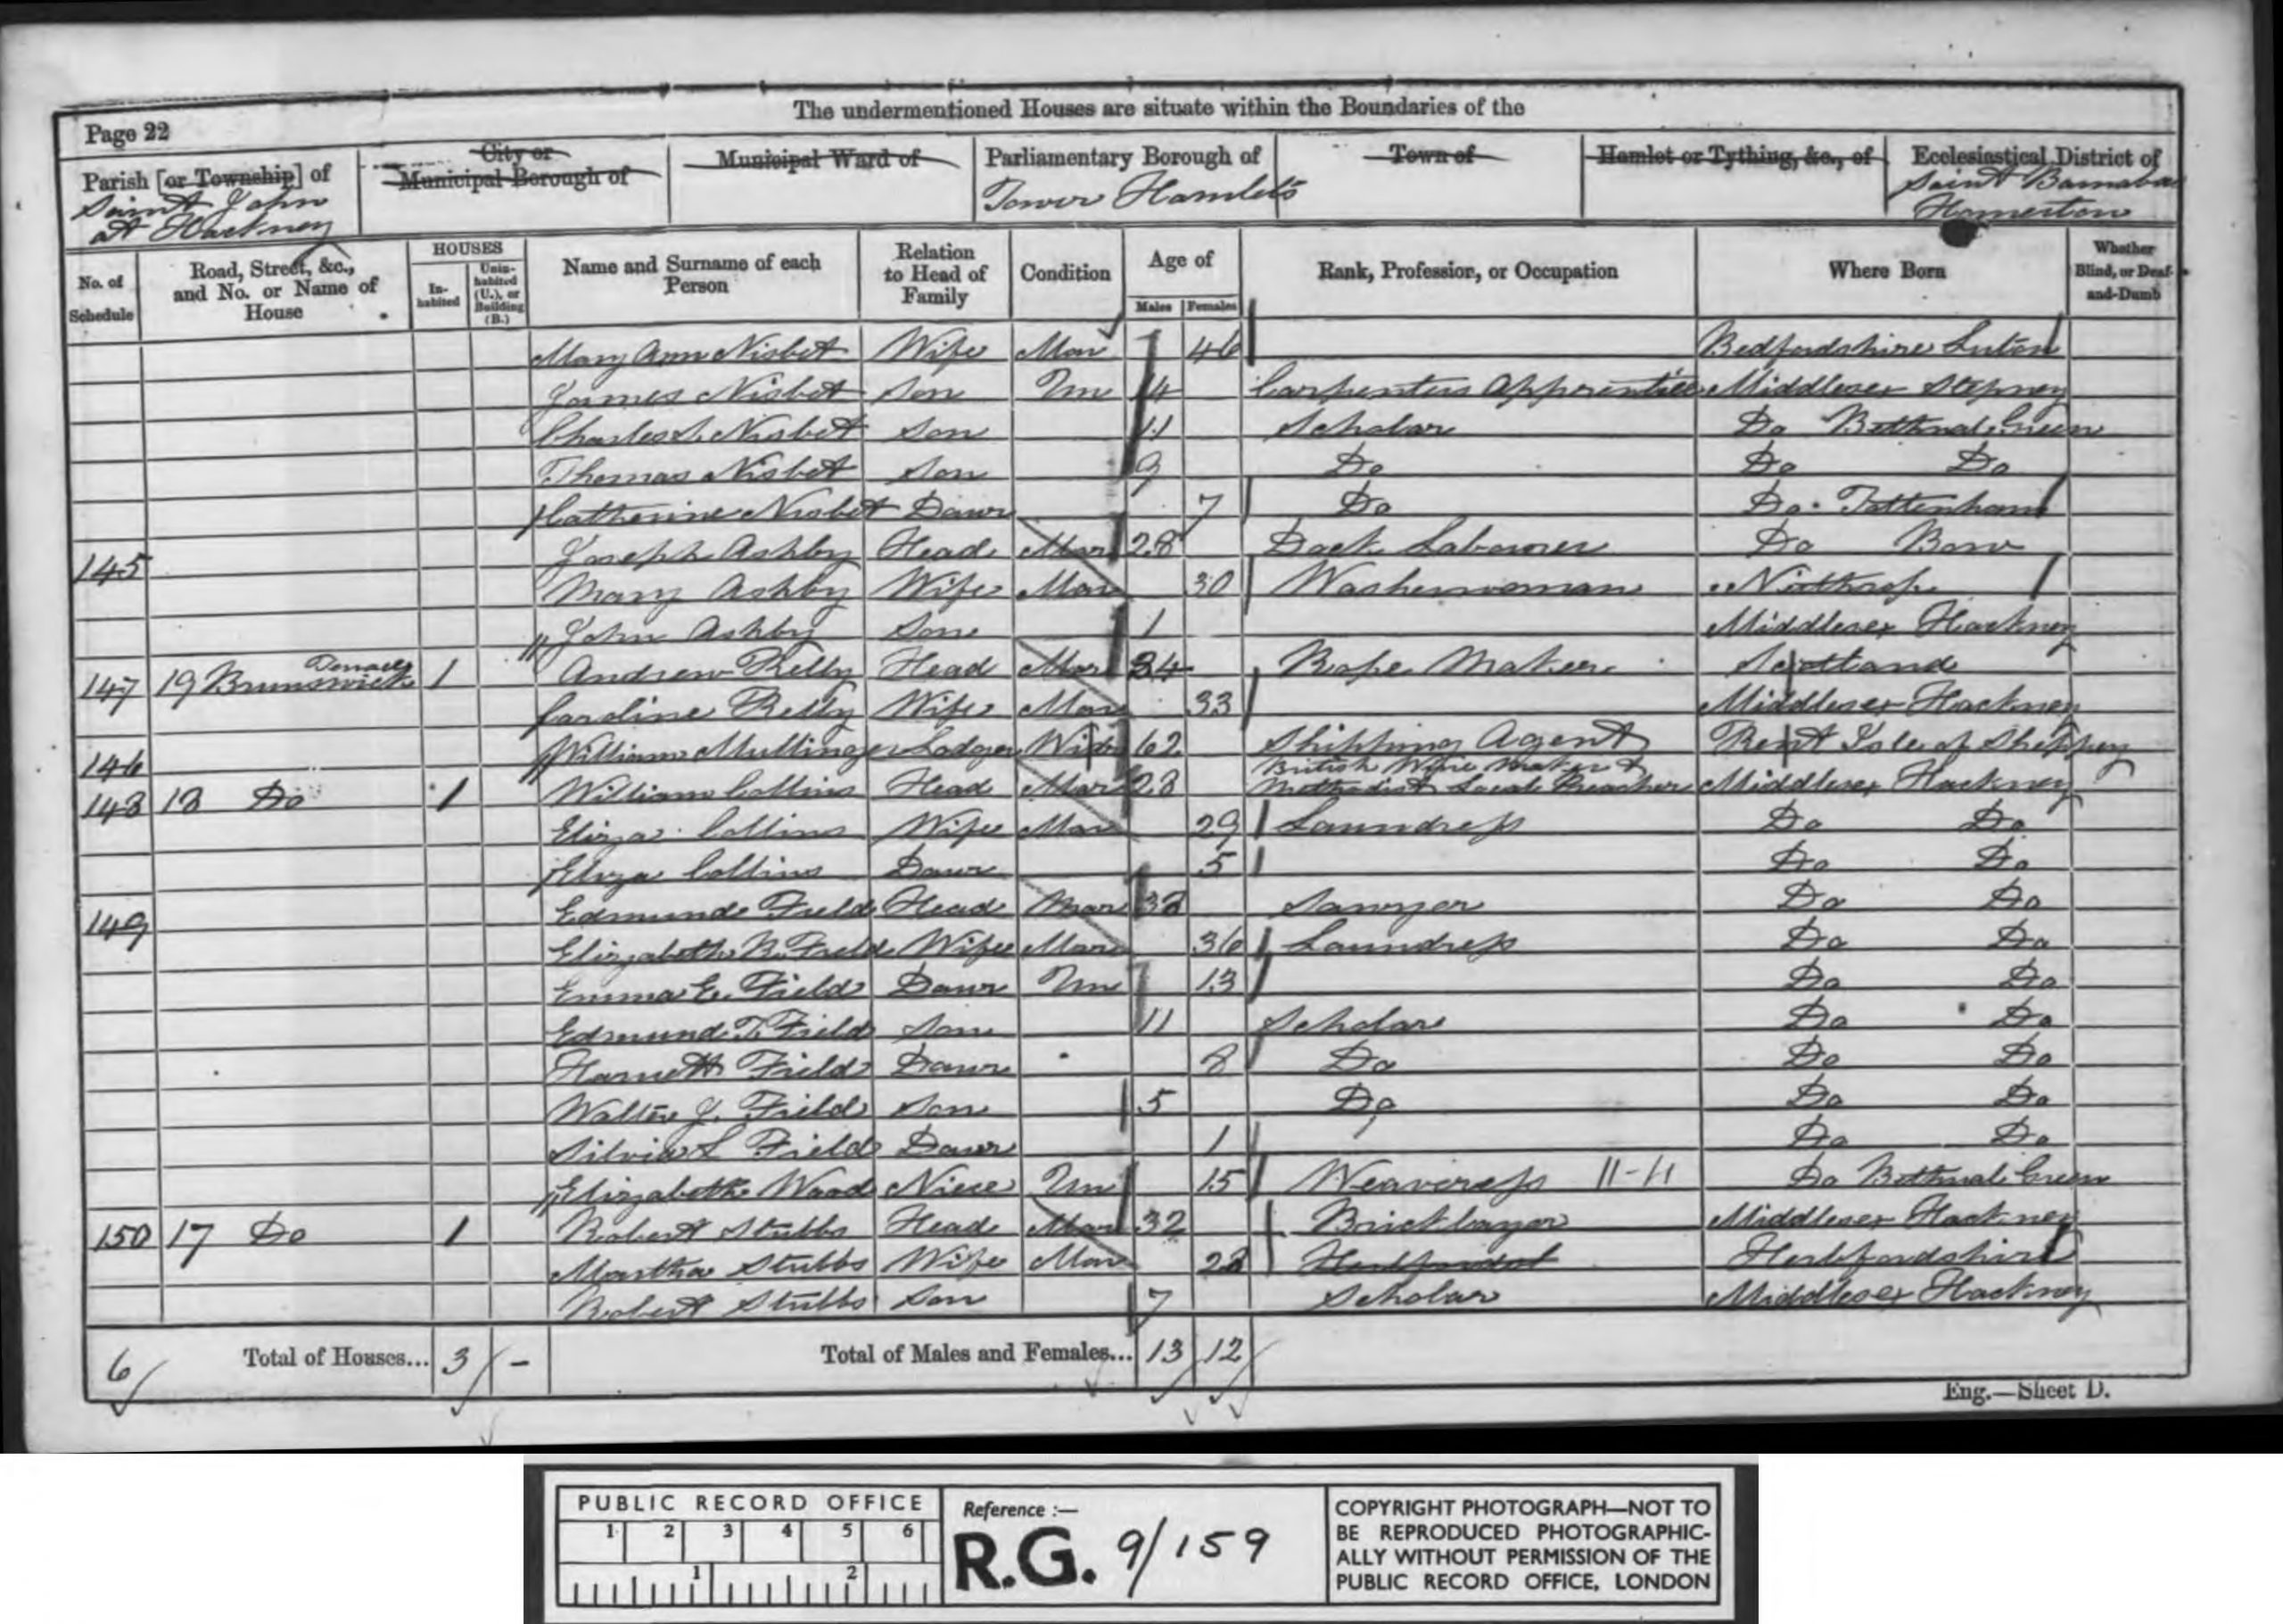 The undermentioned Houses are situate within the Boundaries of the
Page 22
Parish [or Township] of
Saint John
at Hackney
City or
Municipal Borough of
Municipal Ward of
Parliamentary Borough of
Tower Hamlets
Town of
Hamlet or Tything, &c., of
Ecclesiastical District of
Saint Barnabas
Homerton
No. of Schedule
Road, Street, &c., and No. or Name of House
HOUSES
Inhabited
Uninhabited (U.), or Building (B.)
Name and Surname of each Person
Relation to Head of Family
Condition
Age of
Males Females
Rank, Profession, or Occupation
Where Born
Whether Blind, or Deaf-and-Dumb
Mary Ann Nisbet Wife Mar 46 Bedfordshire Luton
James Nisbet Son Un 14 Carpenters Apprentice Middlesex Stepney
Charles S. Nisbet Son 11 Scholar Do Bethnal Green
Thomas Nisbet Son 9 Do Do Do
Catherine Nisbet Daur 7 Do Do Tottenham
145 Joseph Ashby Head Mar 28 Dock Labourer Do Bow
Mary Ashby Wife Mar 30 Washerwoman
John Ashby Son 1 Middlesex Hackney
147 19 Brunswick Terrace 1 Andrew Kelly Head Mar 34 Rope Maker Scotland
Caroline Kelly Wife Mar 33 Middlesex Hackney
146 William Mullinger Lodger Widr 62 Shipping Agent Kent Isle of Sheppey
148 18 Do 1 William Collins Head Mar 28 British Wine Maker & Methodist Local Preacher Middlesex Hackney
Eliza Collins Wife Mar 29 Laundress Do Do
Eliza Collins Daur 5 Do Do
149 Edmund Field Head Mar 38 Sawyer Do Do
Elizabeth R. Field Wife Mar 36 Laundress Do Do
Emma E. Field Daur Un 13 Do Do
Edmund T. Field Son 11 Scholar Do Do
Harriett Field Daur 8 Do Do Do
Walter J. Field Son 5 Do Do Do
Silvia S Field Daur 1 Do Do
Elizabeth Wood Niece Un 15 Weaveress 11-11 Do Bethnal Green
150 17 Do 1 Robert Stubbs Head Mar 32 Bricklayer Middlesex Hackney
Martha Stubbs Wife Mar 28 Hertfordshire
Robert Stubbs Son 7 Scholar Middlesex Hackney
6 Total of Houses... 3 - Total of Males and Females... 13 12
Eng.—Sheet D.
PUBLIC RECORD OFFICE
1 2 3 4 5 6
1 2
Reference :—
R.G. 9/159
COPYRIGHT PHOTOGRAPH—NOT TO
BE REPRODUCED PHOTOGRAPHIC-
ALLY WITHOUT PERMISSION OF THE
PUBLIC RECORD OFFICE, LONDON